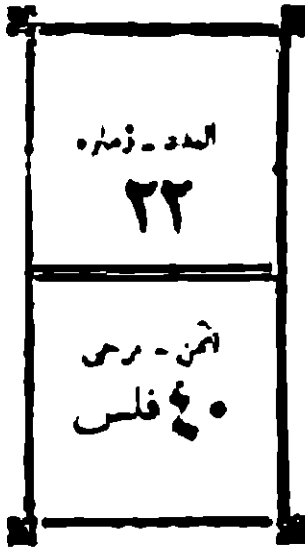 العدد - ژماره
٢٢
الثمن - نرخی
٤٠ فلس